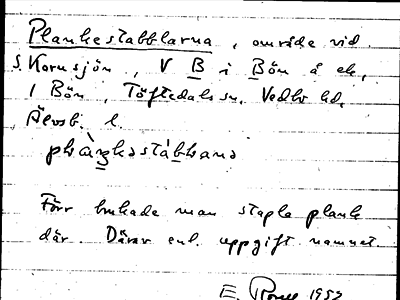 Plankestabblarna, område vid
S. Kornsjön, V B i Bön å ek,
1 Bön, Töftedals sn, Vedbo hd,
Älvsb. l.
Förr brukade man stapla plank
där. Därav enl. uppgift namnet.
E. 1952